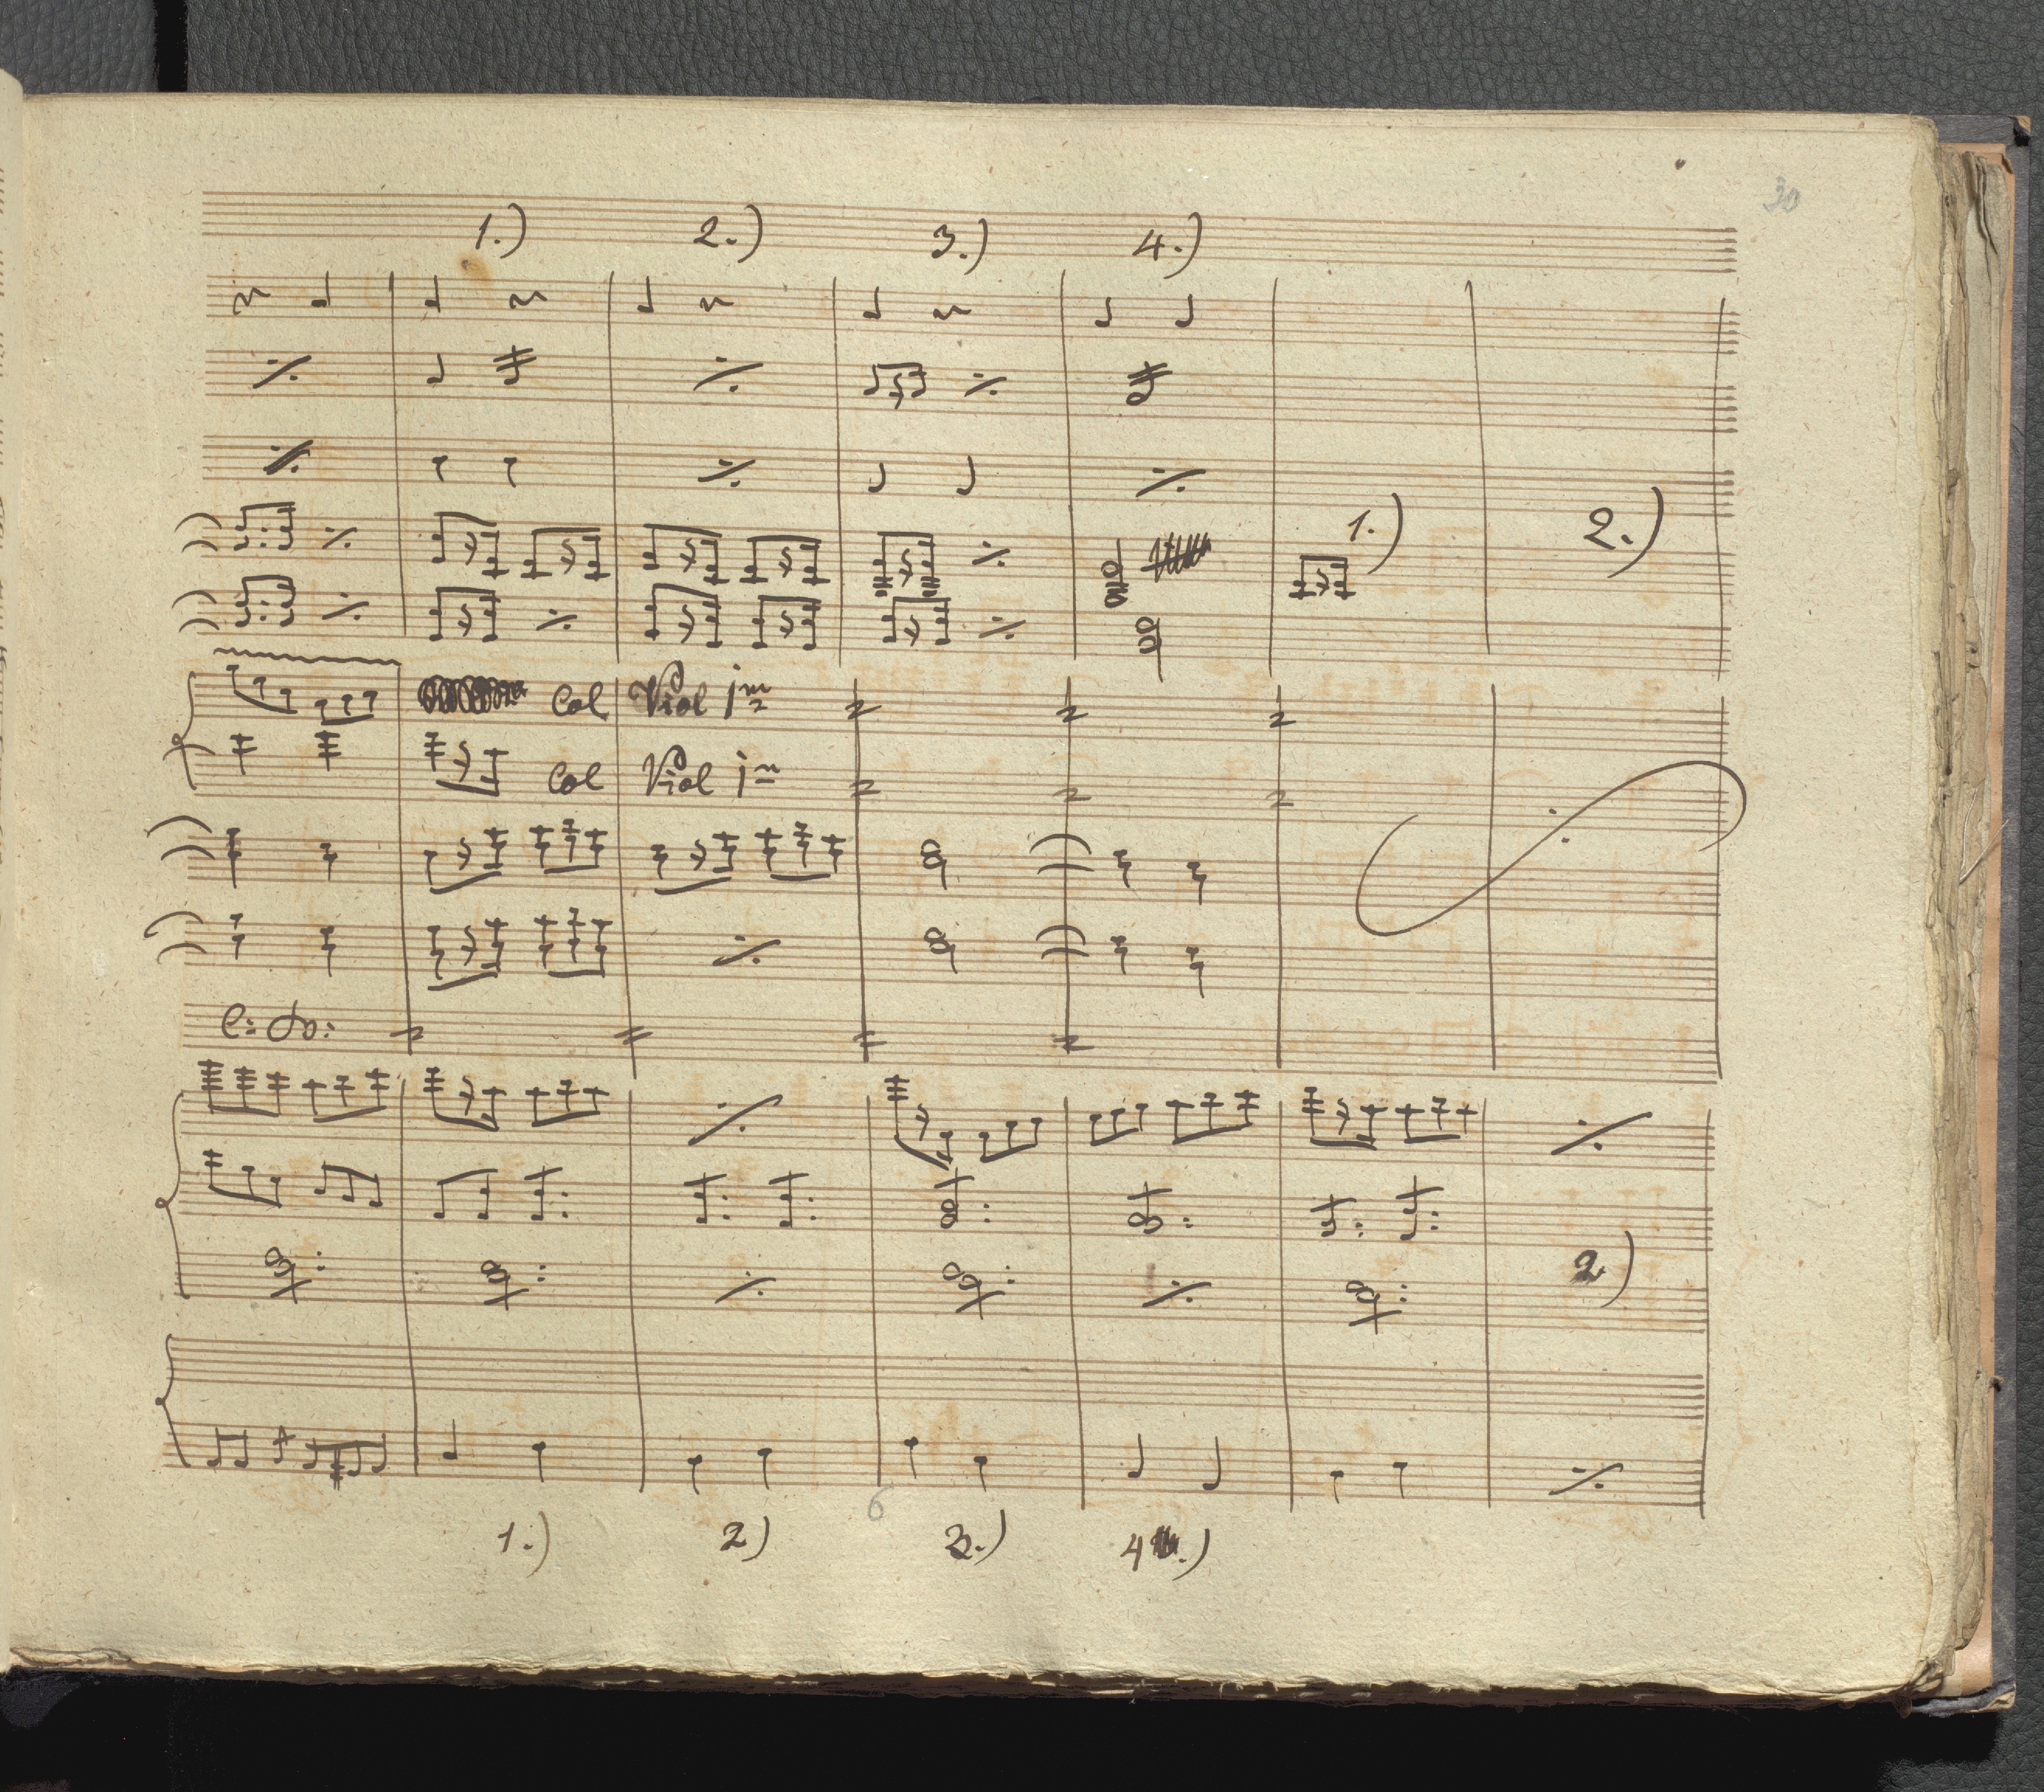 30
1.) 2.) 3.) 4.)
1.) 2.)
Col Viol 1m
Col Viol 1m
C: do:
2)
6
1.) 2) 3.) 4.)